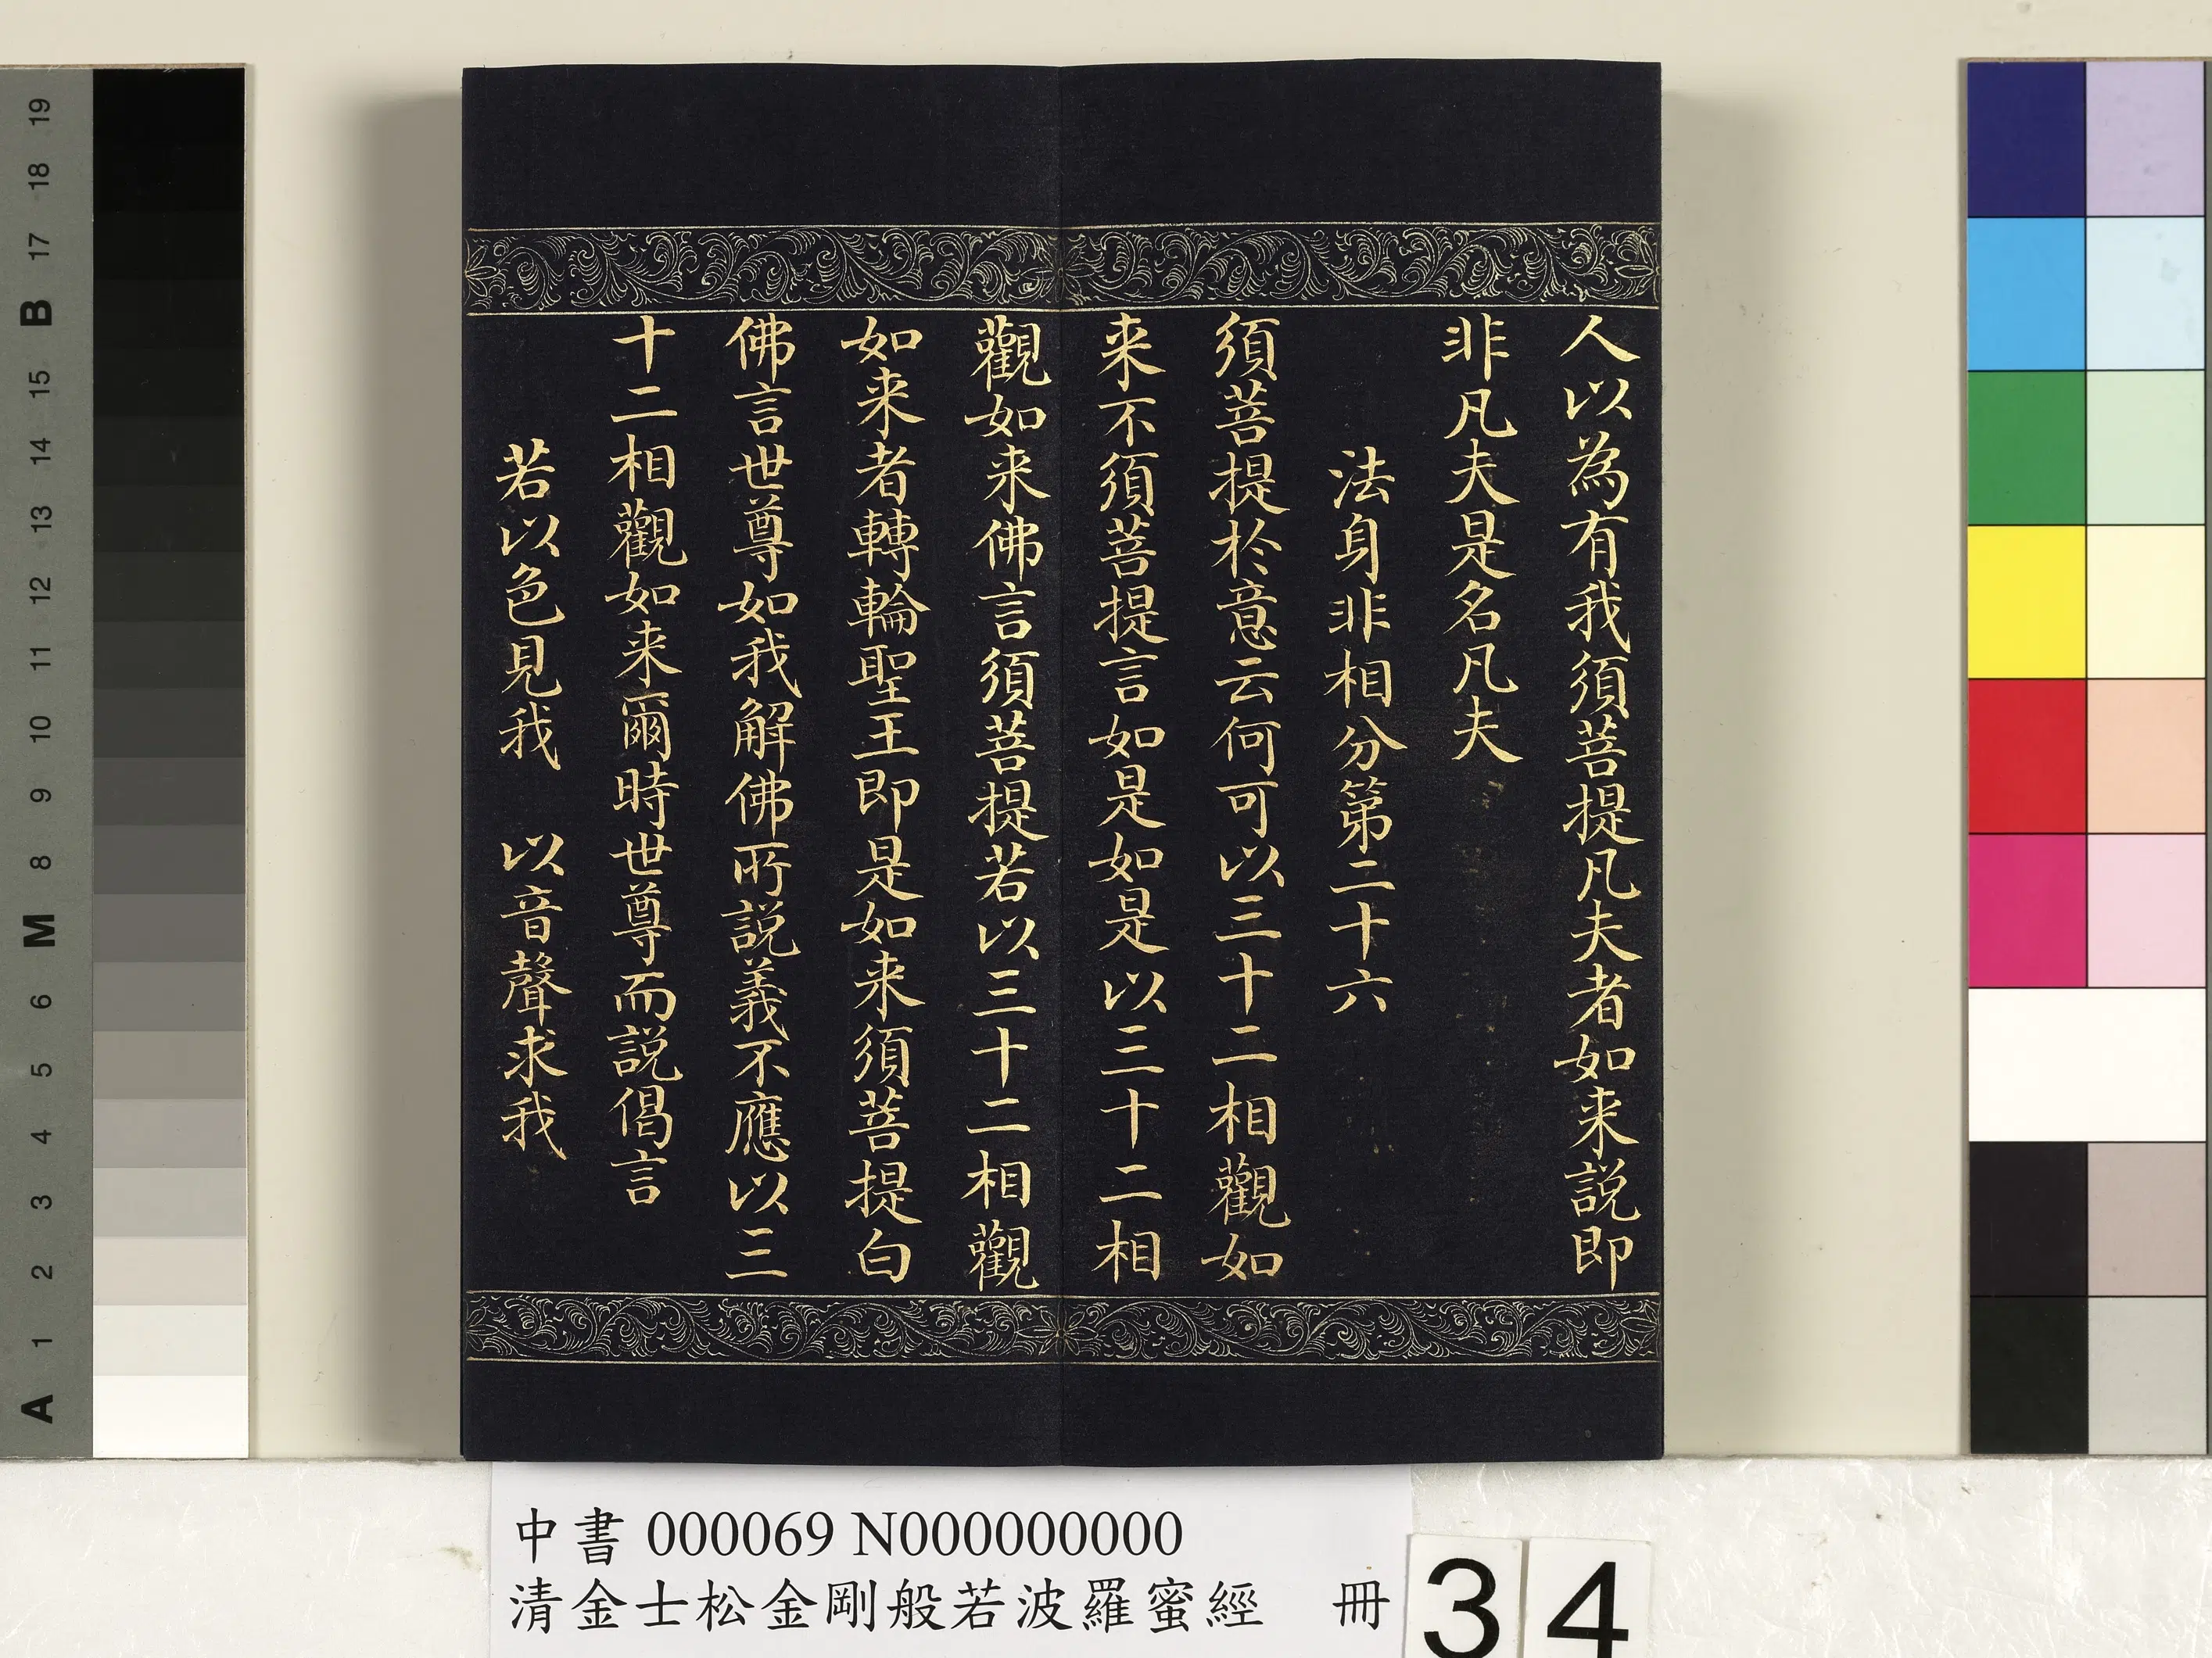 人以為有我須菩提凡夫者如来説即
非凡夫是名凡夫
法身非相分第二十六
須菩提於意云何可以三十二相觀如
来不須菩提言如是如是以三十二相
觀如来佛言須菩提若以三十二相觀
如来者轉輪聖王即是如来須菩提白
佛言世尊如我解佛所説義不應以三
十二相觀如来爾時世尊而説偈言
若以色見我　以音聲求我
中書 000069 N000000000
清金士松金剛般若波羅蜜經　冊
34
19
18
17
B
15
14
13
12
11
10
9
8
M
6
5
4
3
2
1
A